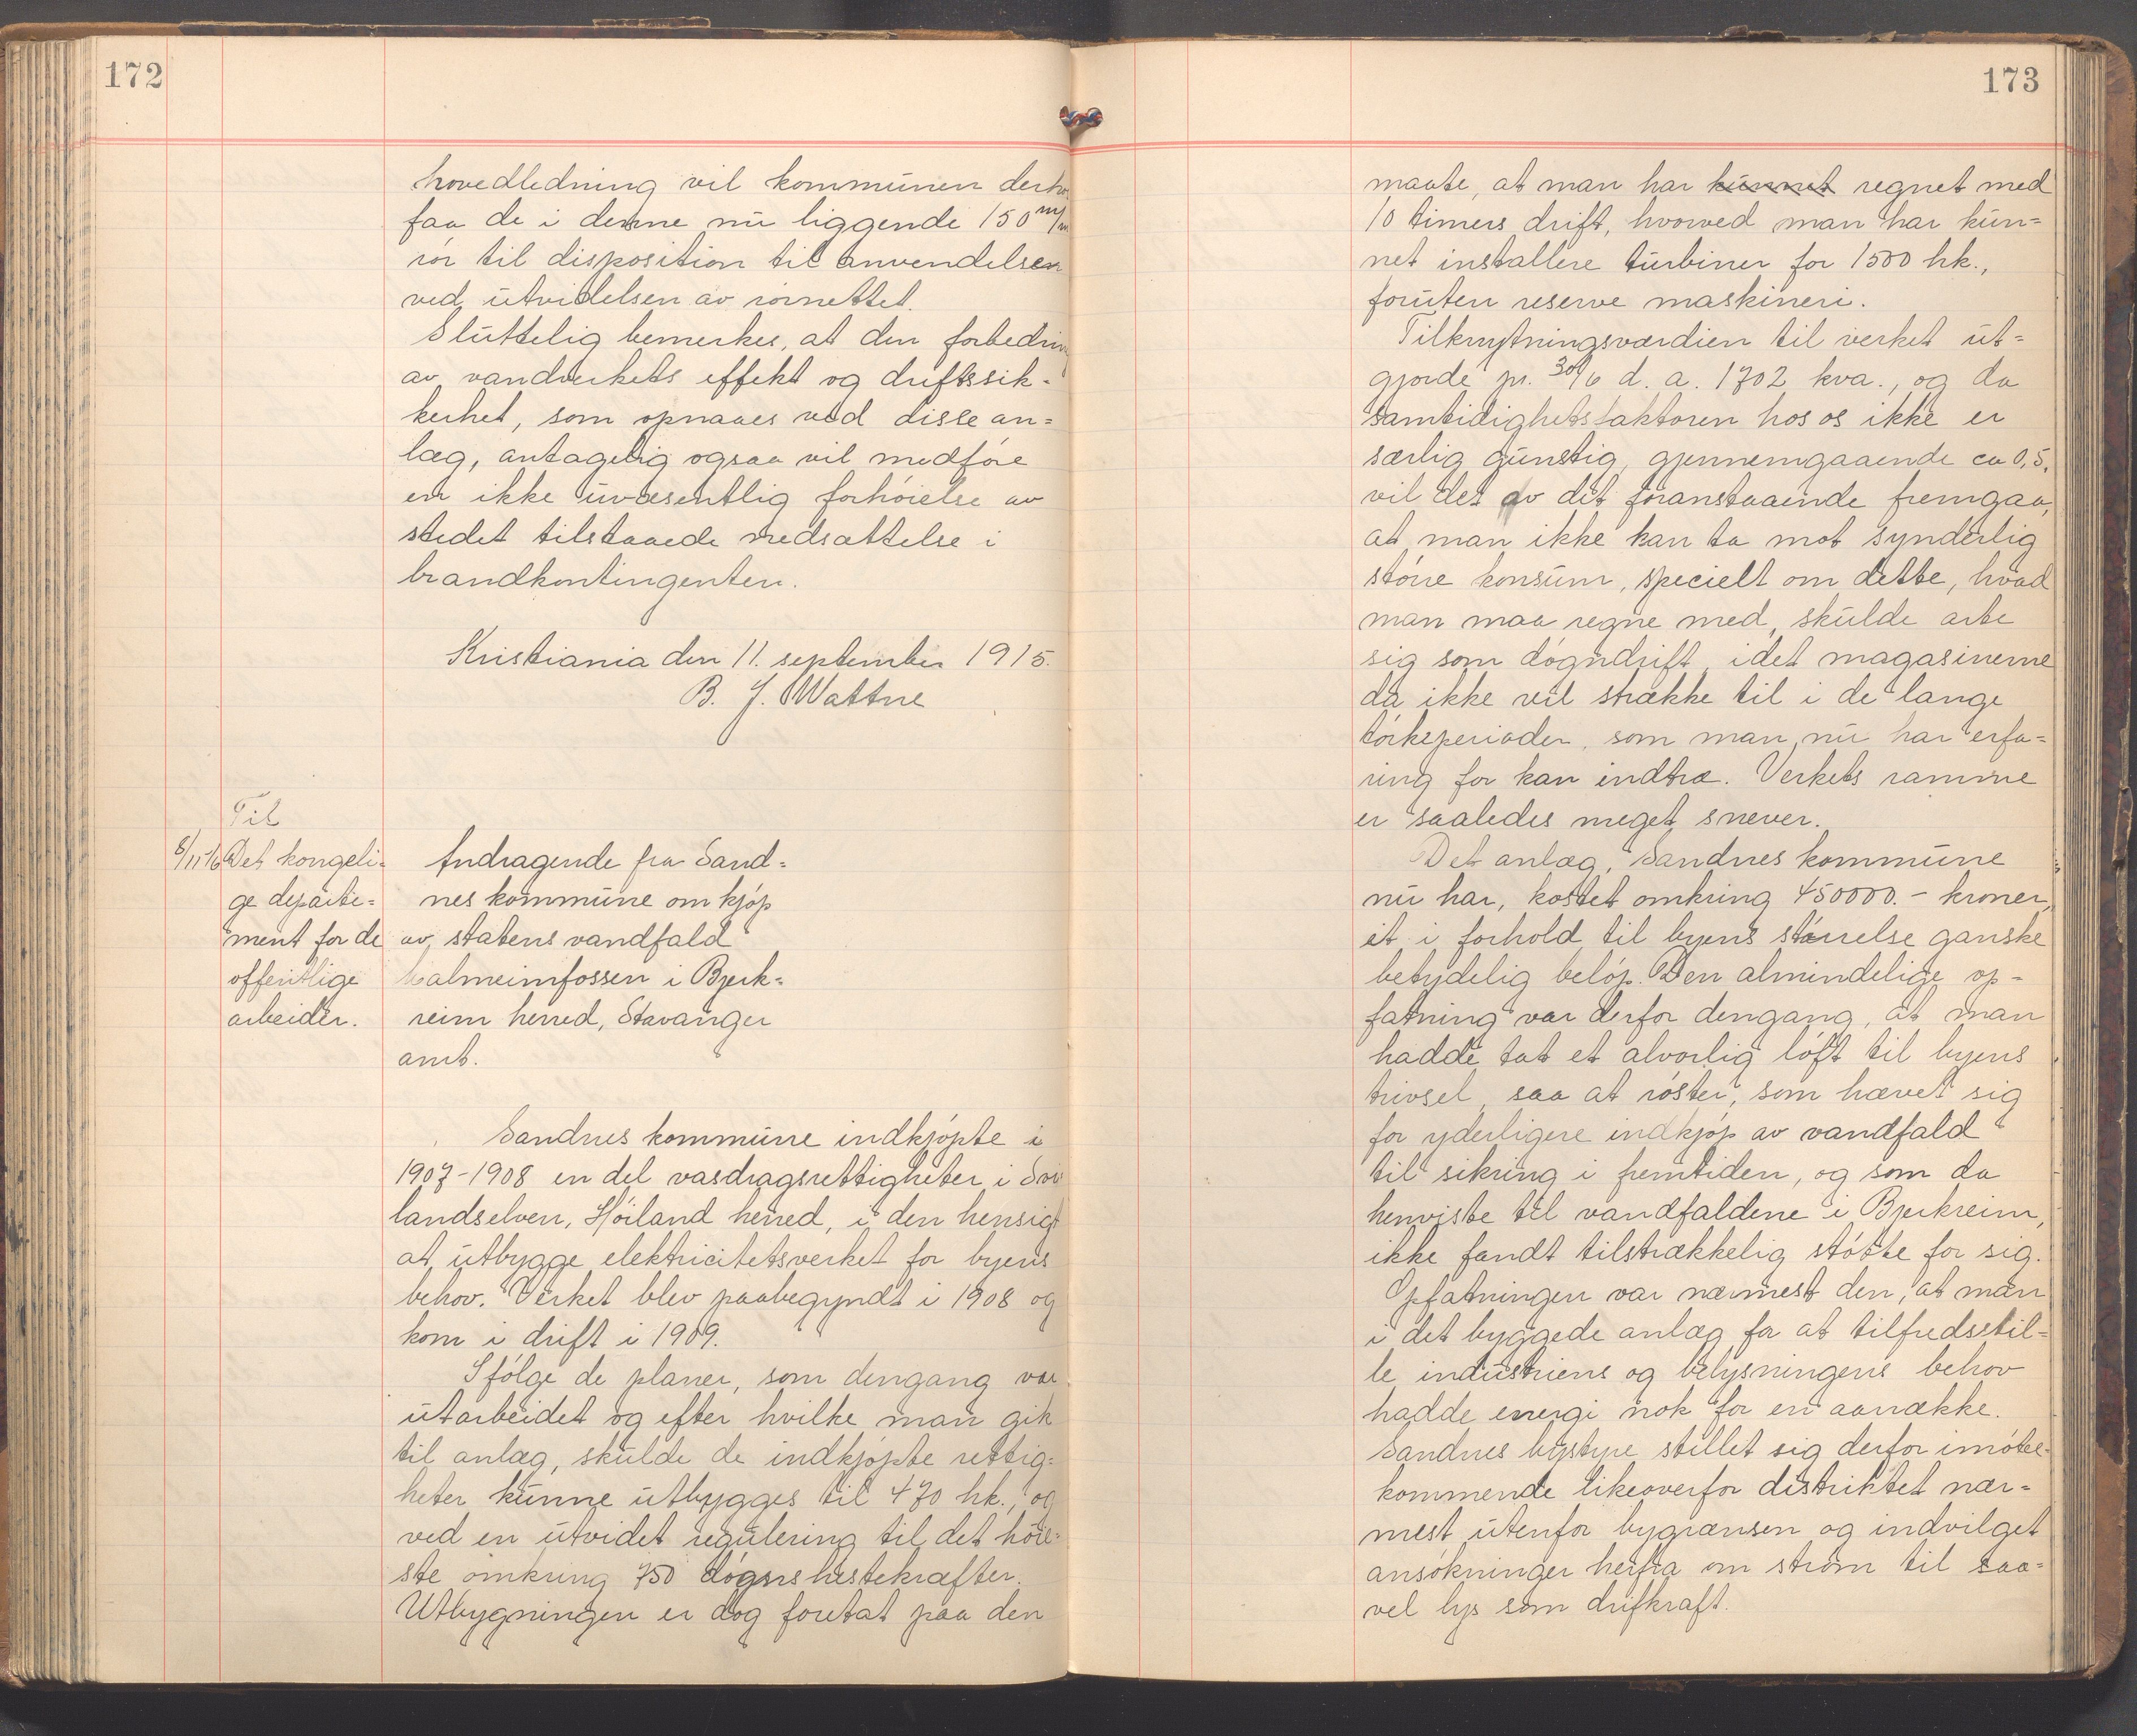 172
hovedledning vil kommunen derhos
faa de i denne nu liggende 150 m/m
rør til disposition til anvendelsen
ved utvidelsen av rørnettet.
Sluttelig bemerkes, at den forbedring
av vandverkets effekt og driftssik-
kerhet, som opnaaes ved disse an=
læg, antagelig ogsaa vil medføre
en ikke uvæsentlig forhøielse av
stedet tilstaaede nedsættelse i
brandkontingenten.
Kristiania den 11. september 1915.
B. J. Wattne
Til
Det kongeli=
ge departe=
ment for de
offentlige
arbeider.
Andragende fra Sand=
nes kommune om kjøp
av statens vandfald
Malmeimfossen i Bjerk=
reim herred, Stavanger
amt.
Sandnes kommune indkjøpte i
1907-1908 en del vasdragsrettigheter i Svi
landselven, Høiland herred, i den hensigt
at utbygge elektricitetsverket for byens
behov. Verket blev paabegyndt i 1908 og
kom i drift i 1909.
Ifølge de planer, som dengang var
utarbeidet og efter hvilke man gik
til anlæg, skulde de indkjøpte rettig=
heter kunne utbygges til 470 hk., og
ved en utvidet regulering til det høie-
ste omkring 750 døgns hestekræfter.
Utbygningen er dog foretat paa den
173
maate, at man har kunnet regnet med
10 timers drift, hvorved man har kun=
net installere turbiner for 1500 hk.,
foruten reserve maskineri.
Tilknytningsværdien til verket ut=
gjorde pr. 30/6 d. a. 1702 kva., og da
samtidighetsfaktoren hos os ikke er
særlig gunstig, gjennemgaaende ca 0,5,
vil det av det foranstaaende fremgaa,
at man ikke kan ta mot synderlig
større konsum, specielt om dette, hvad
man maa regne med, skulde arte
sig som døgndrift, idet magasinerne
da ikke vil strække til i de lange
tørkeperioder, som man nu har erfa=
ring for kan indtræ. Verkets ramme
er saaledes meget snever.
Det anlæg, Sandnes kommune
nu har, kostet omkring 450000.- kroner,
et i forhold til byens størrelse ganske
betydelig beløp. Den almindelige op-
fatning var derfor dengang, at man
hadde tat et alvorlig løft til byens
trivsel, saa at røster, som hævet sig
for yderligere indkjøp av vandfald
til sikring i fremtiden, og som da
henviste til vandfaldene i Bjerkreim,
ikke fandt tilstrækkelig støtte for sig.
Opfatningen var nærmest den, at man
i det byggede anlæg for at tilfredsstil=
le industriens og belysningens behov
hadde energi nok for en aarække.
Sandnes bystyre stillet sig derfor imøte-
kommende likeoverfor distriktet nær=
mest utenfor bygrænsen og indvilget
ansøkninger herfra om strøm til saa=
vel lys som drifkraft.